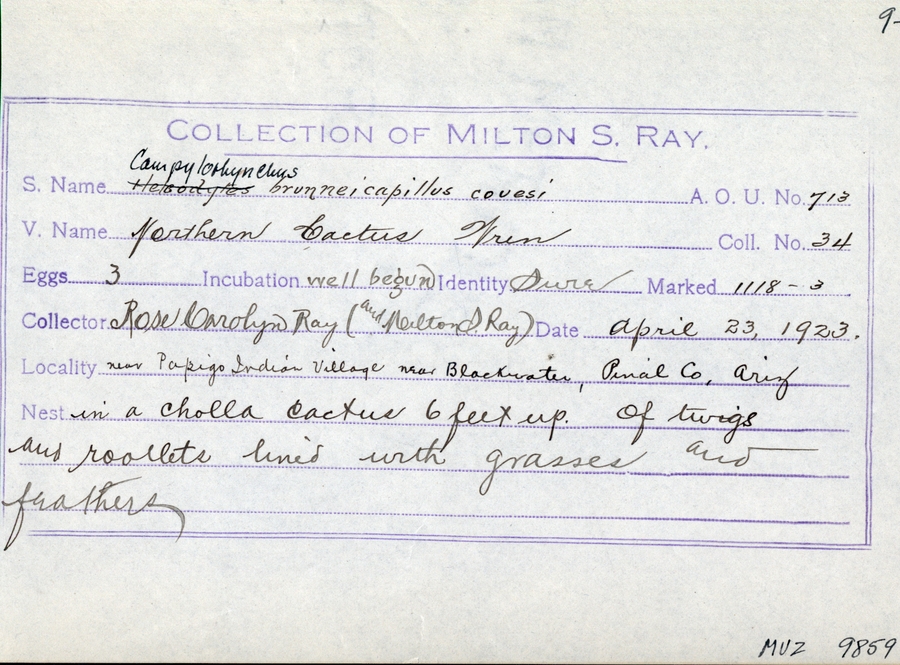 9-
COLLECTION OF MILTON S. RAY.
Campylorhynchus
S. Name Heleodytes brunneicapillus couesi A. O. U. No. 713
V. Name Northern Cactus Wren Coll. No. 34
Eggs 3 Incubation well begun Identity Sure Marked 1118-3
Collector Rose Carolyn Ray (and Milton S Ray) Date April 23, 1923.
Locality near Papigo Indian Village near Blackwater, Pinal Co, Ariz
Nest in a cholla cactus 6 feet up. Of twigs
and rootlets lined with grasses and
feathers
MVZ 9859